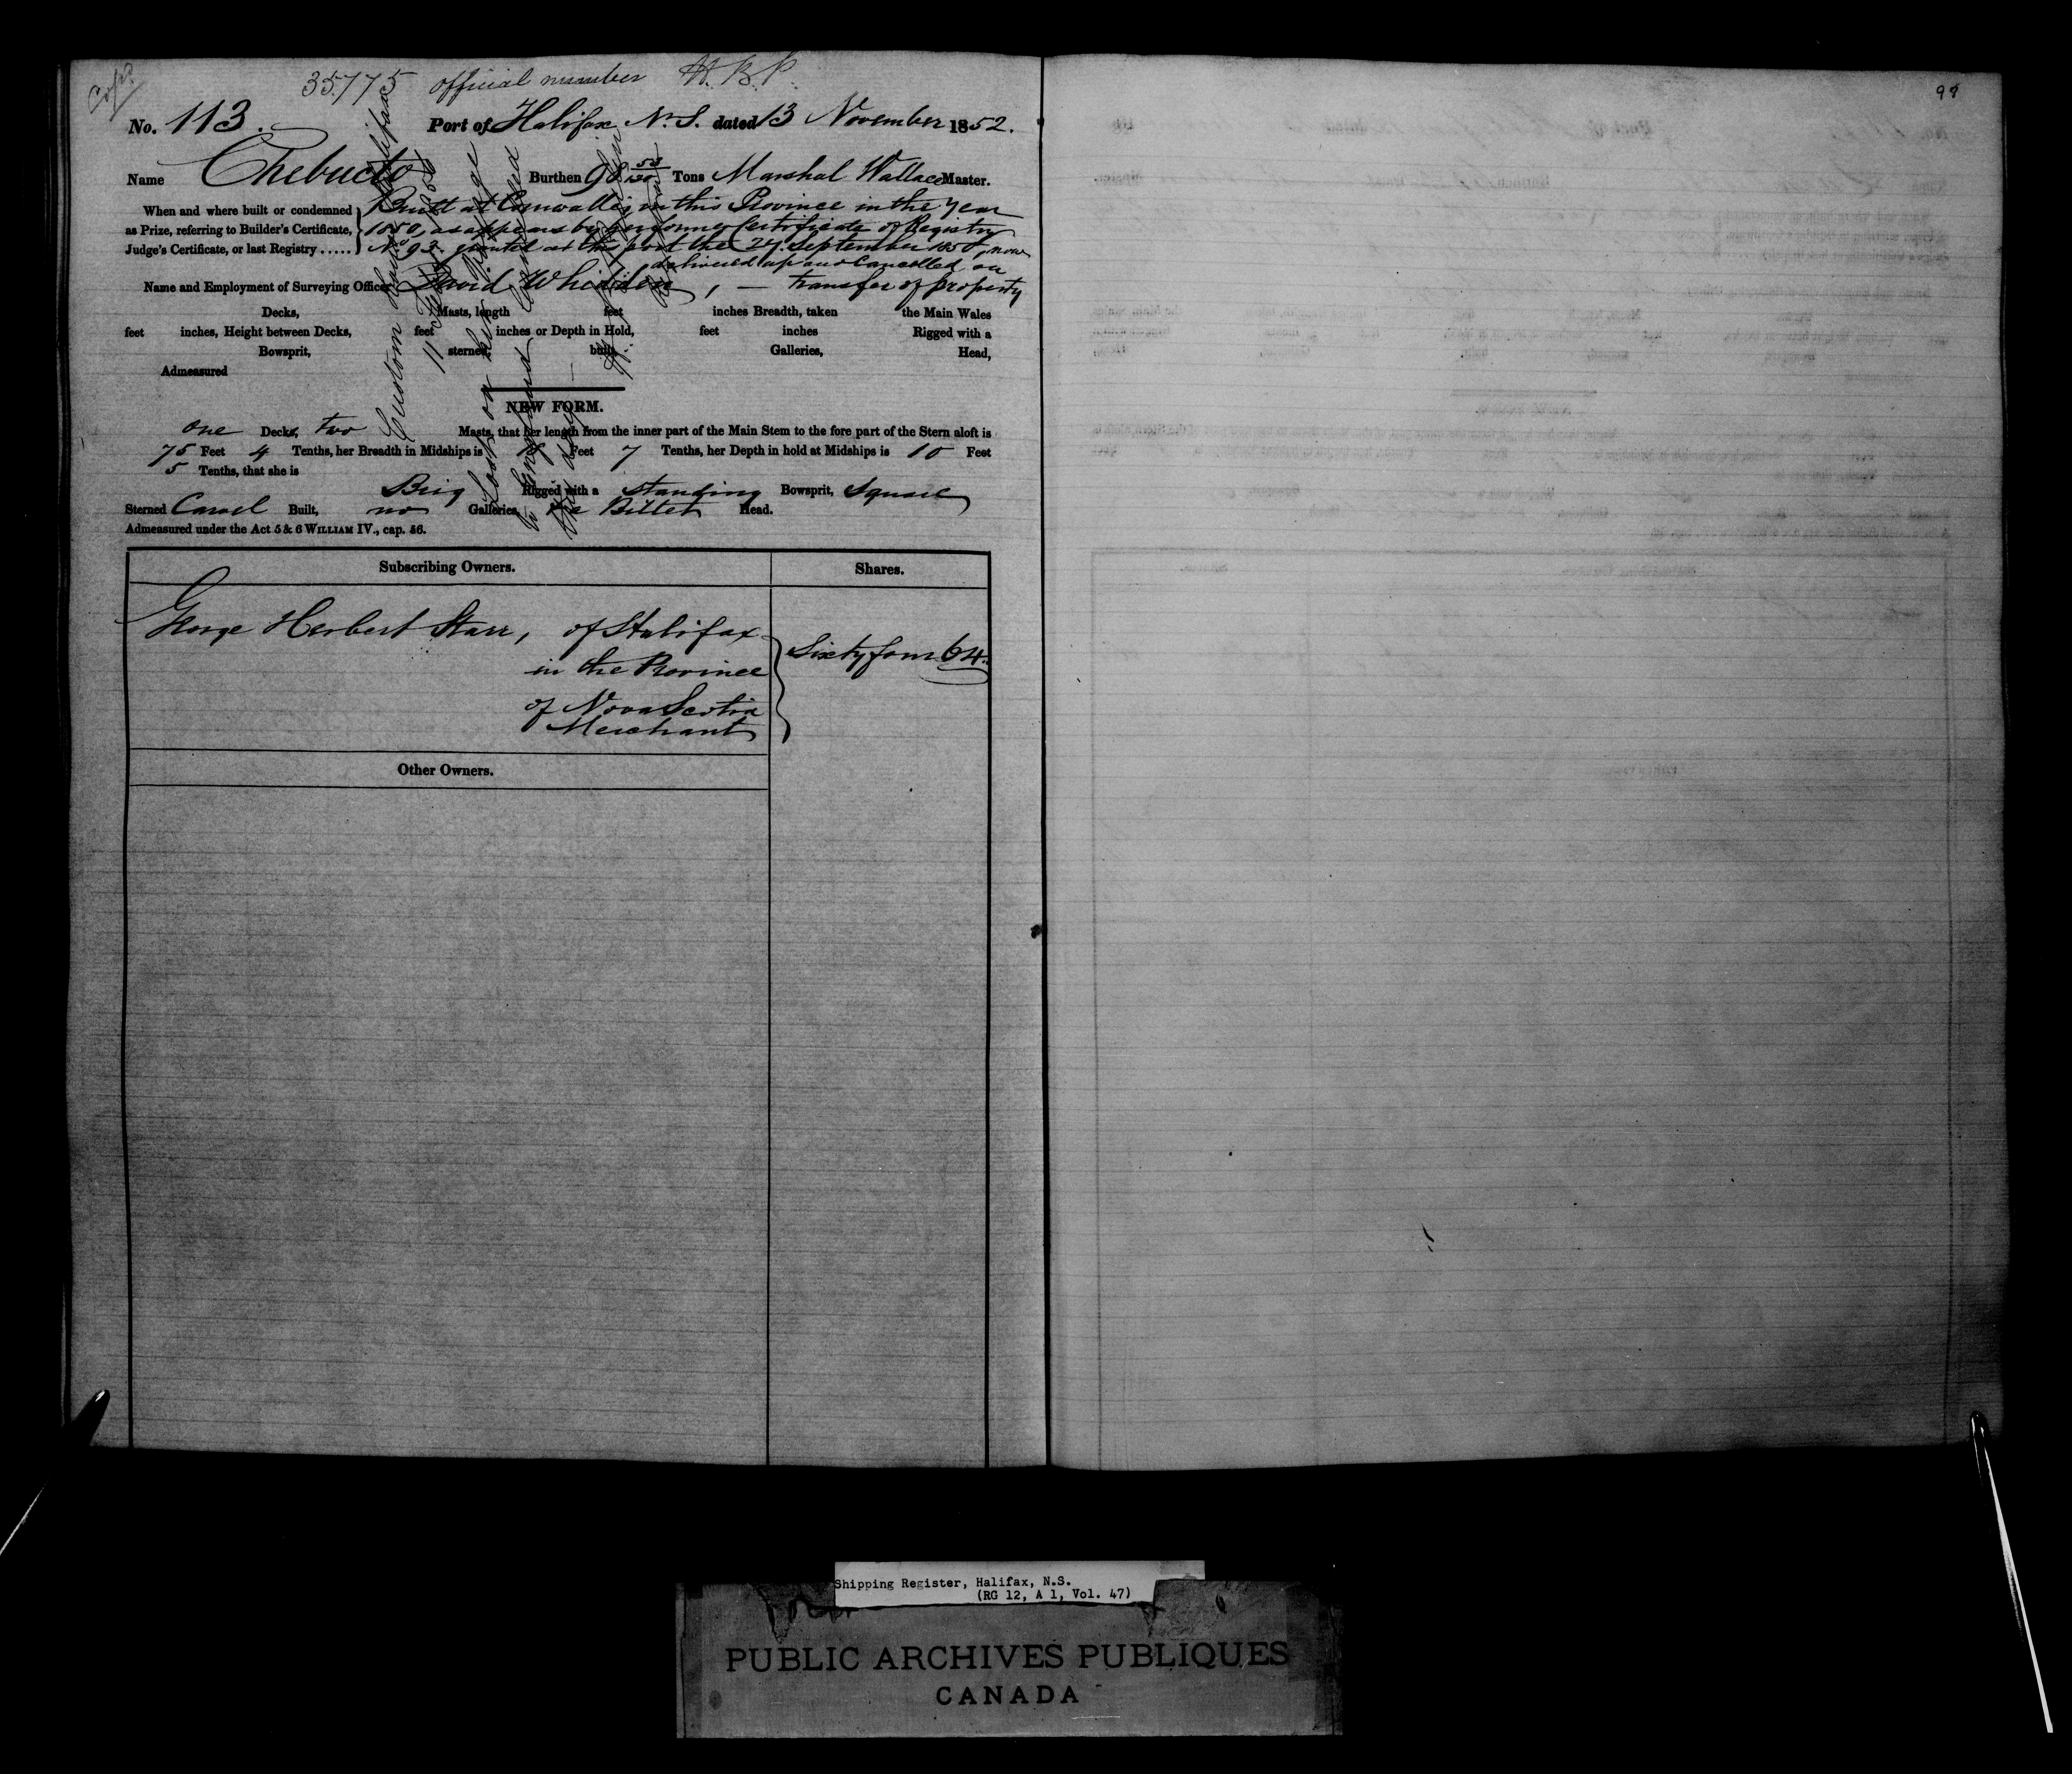 Copd
35775 official number W.B.P.
98
No. 113. Port of Halifax N.S. dated 13 November 1852.
Name Chebucto Burthen 98 Tons Marshal Wallace Master.
When and where built or condemned as Prize, referring to Builder's Certificate, Judge's Certificate, or last Registry .....
Built at Cornwallis, in this Province in the Year
1850, as appears by former Certificate of Registry
No 93 granted at this port the 24 September 1850, now
delivered up and Cancelled on
Name and Employment of Surveying Officer David Whidden, — transfer of property
Decks, Masts, length feet inches Breadth, taken the Main Wales
feet inches, Height between Decks, feet inches or Depth in Hold, feet inches Rigged with a
Bowsprit, sterned, built Galleries, Head,
Admeasured
Custom House Halifax
11
Lost on
to England Cancelled
NEW FORM.
one Decks, two Masts, that her length from the inner part of the Main Stem to the fore part of the Stern aloft is
75 Feet 4 Tenths, her Breadth in Midships is Feet 7 Tenths, her Depth in hold at Midships is 10 Feet
5 Tenths, that she is
Brig Rigged with a standing Bowsprit, Square
Sterned Carvel Built, no Galleries, Billet Head.
Admeasured under the Act 5 & 6 WILLIAM IV., cap. 56.
Subscribing Owners. Shares.
George Herbert Starr, of Halifax
in the Province
of Nova Scotia
Merchant
Sixty four 64.
Other Owners.
Shipping Register, Halifax, N.S.
(RG 12, A 1, Vol. 47)
PUBLIC ARCHIVES PUBLIQUES
CANADA